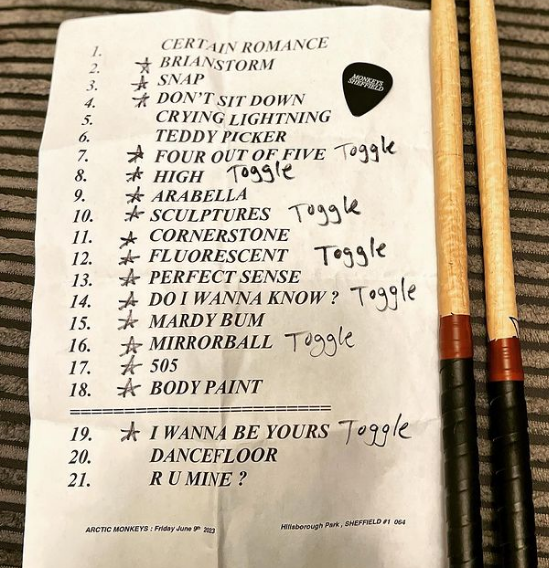 1. CERTAIN ROMANCE
2. ☆ BRIANSTORM
3. ☆ SNAP
4. ☆ DON'T SIT DOWN
5. CRYING LIGHTNING
6. TEDDY PICKER
7. ☆ FOUR OUT OF FIVE Toggle
8. ☆ HIGH Toggle
9. ☆ ARABELLA
10. ☆ SCULPTURES Toggle
11. ☆ CORNERSTONE
12. ☆ FLUORESCENT Toggle
13. ☆ PERFECT SENSE
14. ☆ DO I WANNA KNOW ? Toggle
15. ☆ MARDY BUM
16. ☆ MIRRORBALL Toggle
17. ☆ 505
18. ☆ BODY PAINT
==========================
19. ☆ I WANNA BE YOURS Toggle
20. DANCEFLOOR
21. R U MINE ?
ARCTIC MONKEYS : Friday June 9th 2023
Hillsborough Park, SHEFFIELD #1 064
MONKEYS
SHEFFIELD